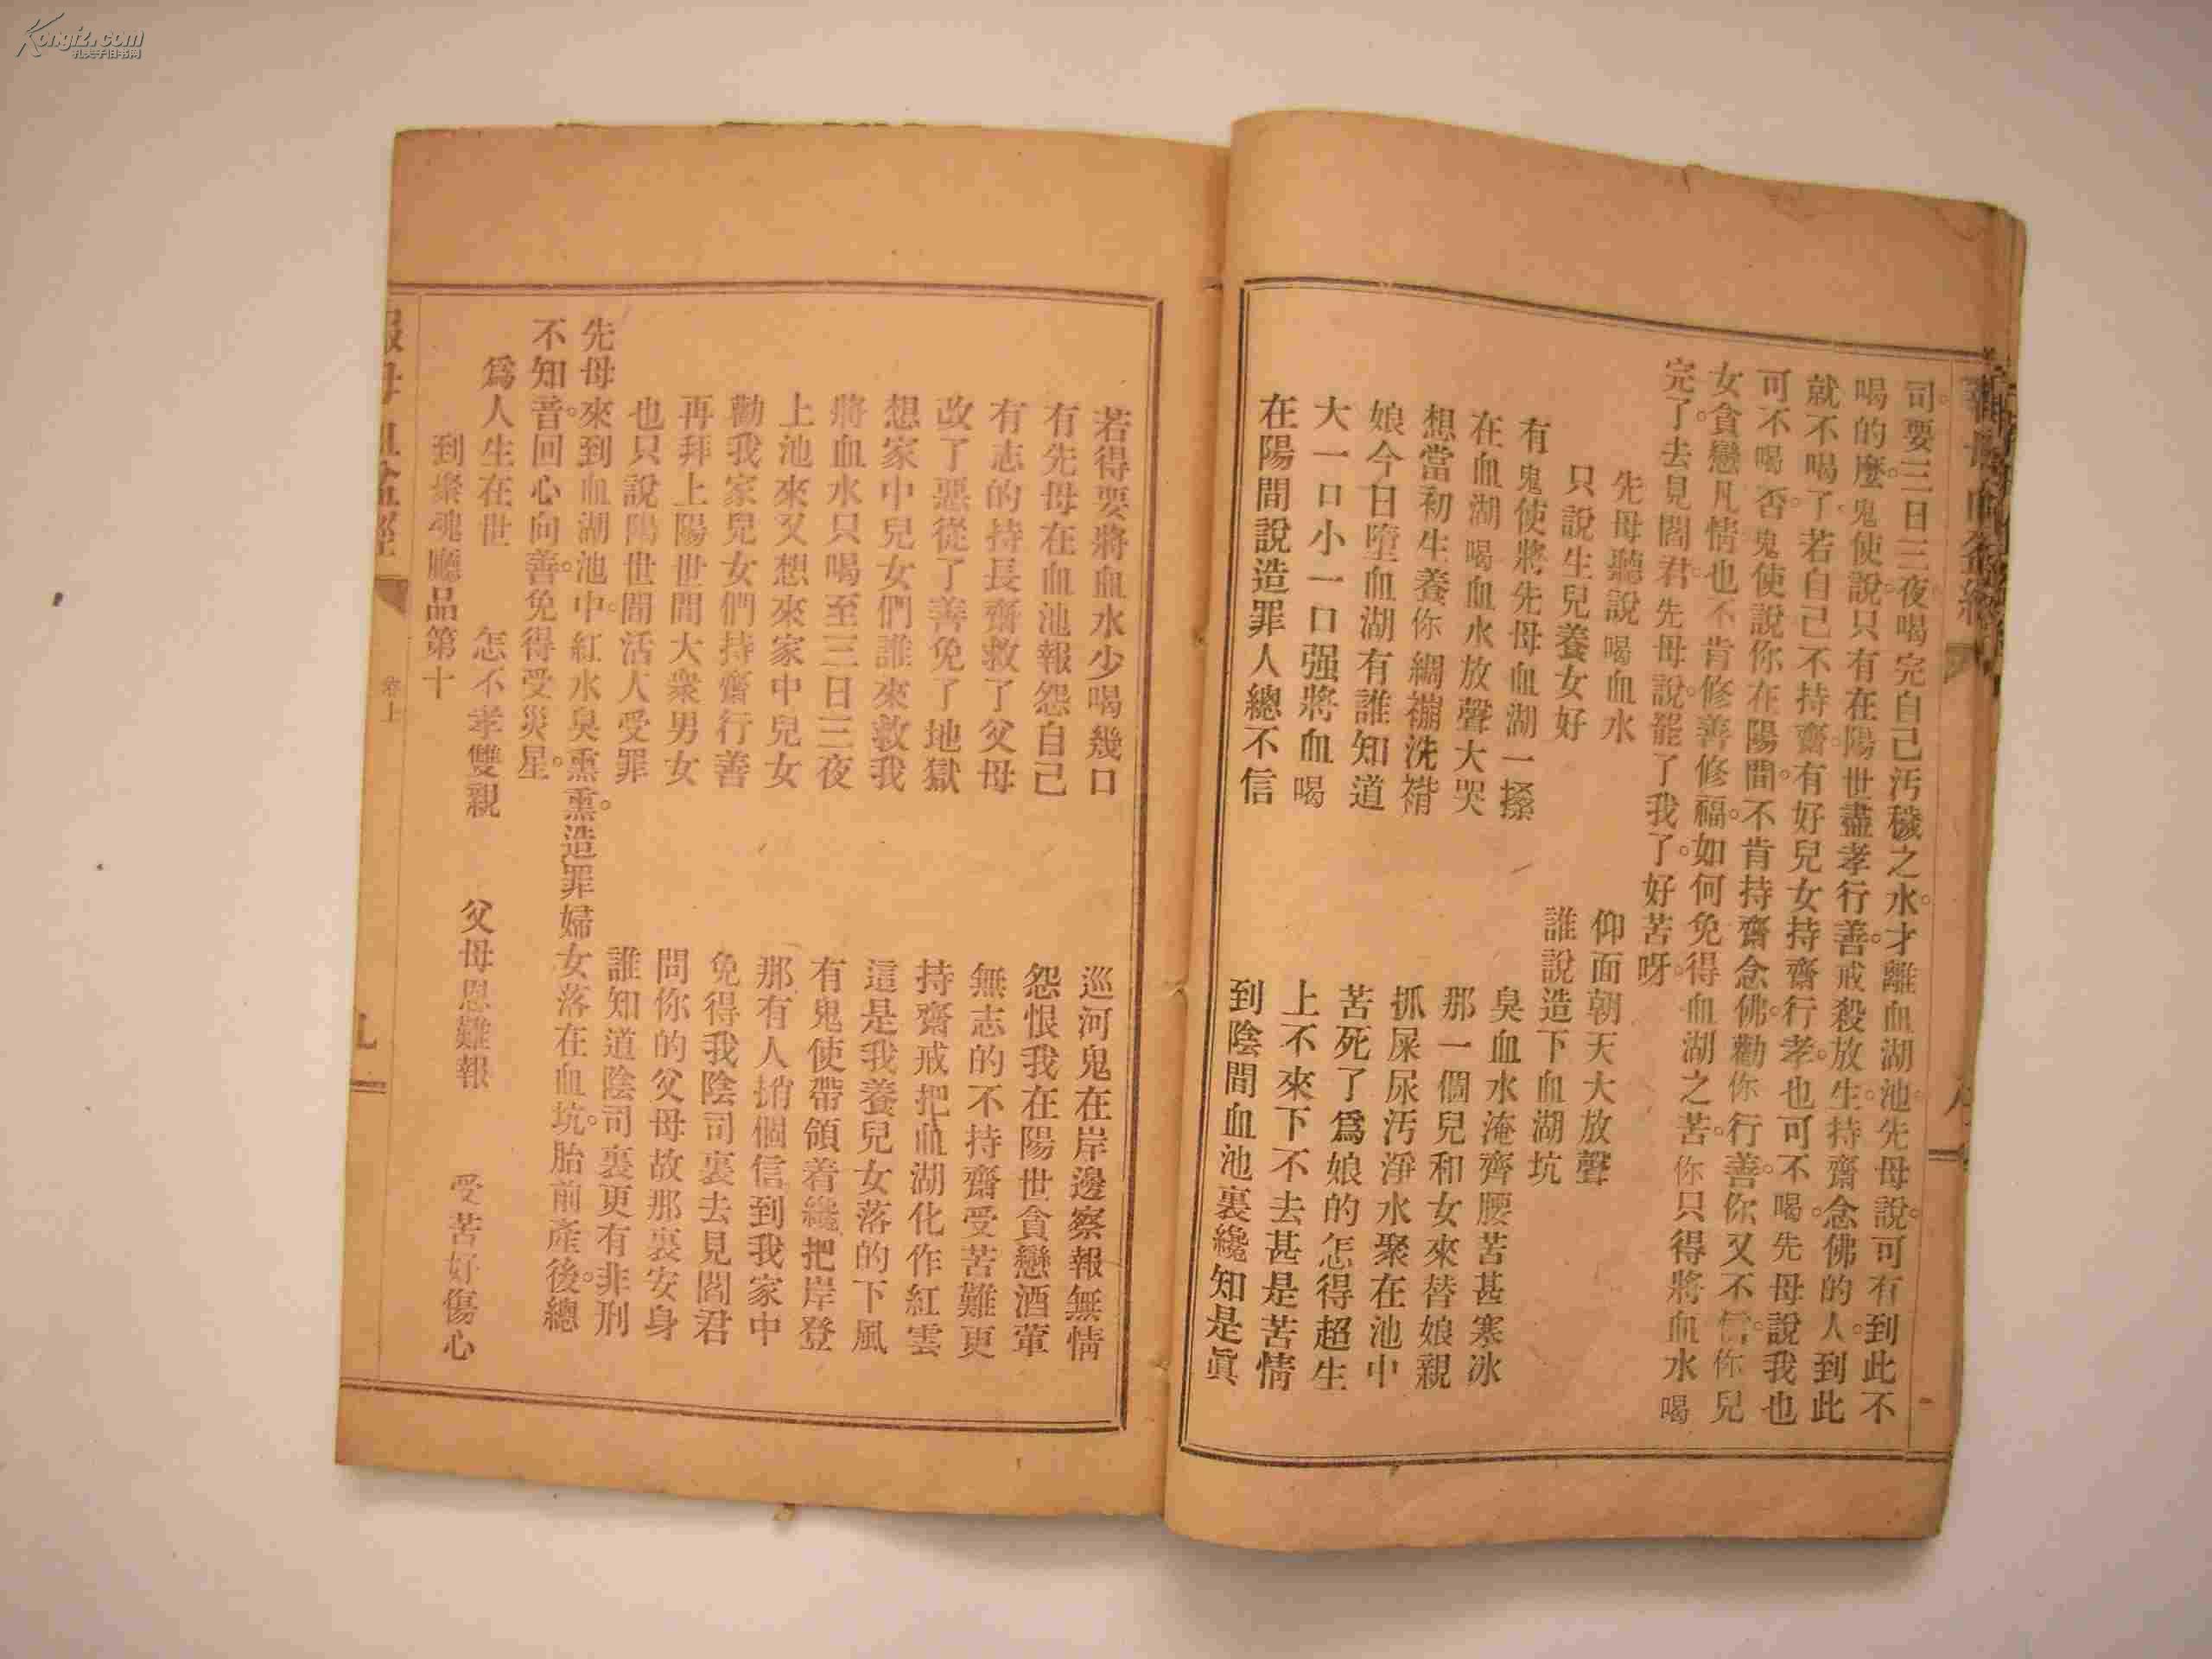 Kongfz.com
孔夫子旧书网
報母血盆經
司要三日三夜喝完自己汚穢之水才離血湖池先母說可有到此不
喝的麼鬼使說只有在陽世盡孝行善戒殺放生持齋念佛的人到此
就不喝了若自己不持齋有好兒女持齋行孝也可不喝先母說我也
可不喝否鬼使說你在陽間不肯持齋念佛勸你行善你又不信你兒
女貪戀凡情也不肯修善修福如何免得血湖之苦你只得將血水喝
完了去見閻君先母說罷了我了好苦呀
先母聽說喝血水 仰面朝天大放聲
只說生兒養女好 誰說造下血湖坑
有鬼使將先母血湖一搡 臭血水淹齊腰苦甚寒冰
在血湖喝血水放聲大哭 那一個兒和女來替娘親
想當初生養你綑襧洗褙 抓屎尿汚淨水聚在池中
娘今日墮血湖有誰知道 苦死了爲娘的怎得超生
大一口小一口强將血喝 上不來下不去甚是苦情
在陽間說造罪人總不信 到陰間血池裏纔知是眞
若得要將血水少喝幾口 巡河鬼在岸邊察報無情
有先母在血池報怨自己 怨恨我在陽世貪戀酒葷
有志的持長齋救了父母 無志的不持齋受苦難更
改了惡從了善免了地獄 持齋戒把血湖化作紅雲
想家中兒女們誰來救我 這是我養兒女落的下風
將血水只喝至三日三夜 有鬼使帶領着纔把岸登
上池來又想來家中兒女 那有人捎個信到我家中
勸我家兒女們持齋行善 免得我陰司裏去見閻君
再拜上陽世間大衆男女 問你的父母故那裏安身
也只說陽世間活人受罪 誰知道陰司裏更有非刑
先母來到血湖池中紅水臭熏熏造罪婦女落在血坑胎前產後總
不知音回心向善免得受災星
爲人生在世 怎不孝雙親 父母恩難報 受苦好傷心
到衆魂廳品第十
報母血盆經 卷上 九